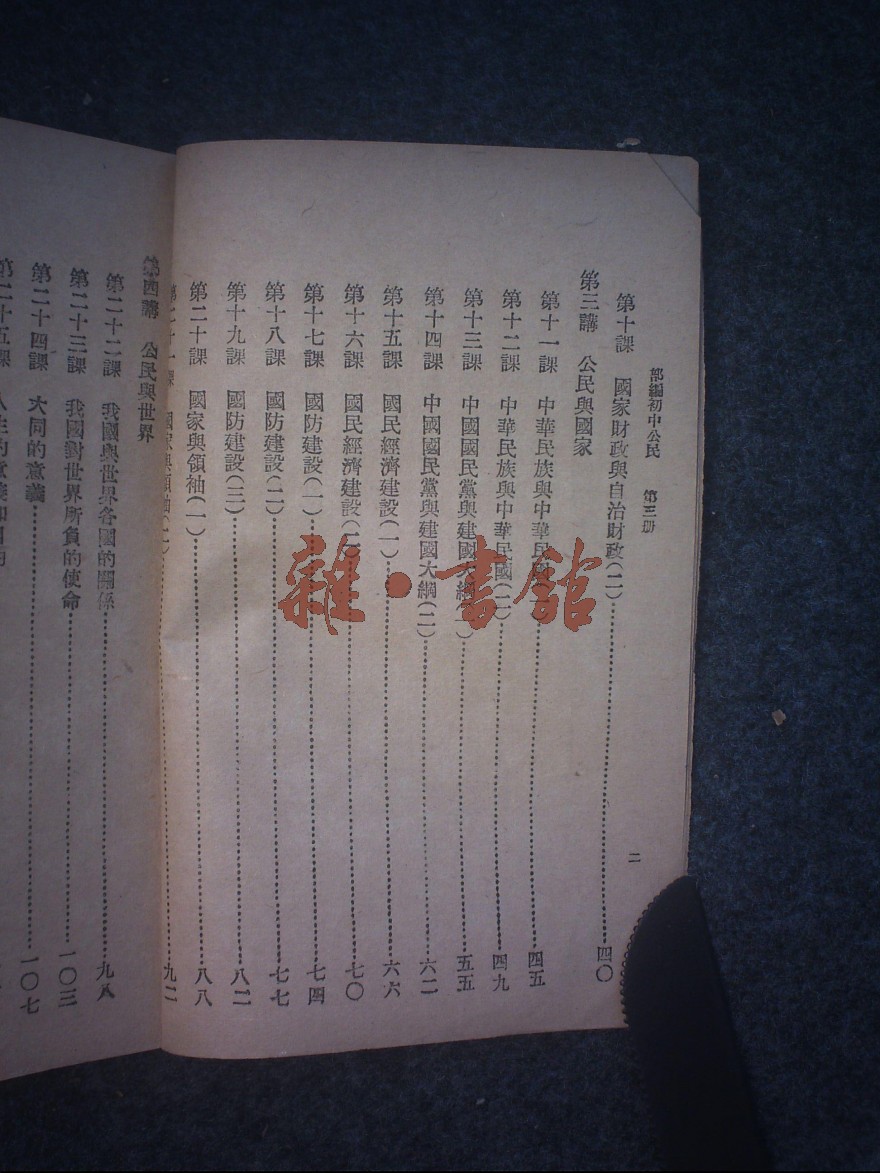 部編初中公民　第三册
二
第十課　國家財政與自治財政(二)…………四〇
第三講　公民與國家
第十一課　中華民族與中華民國…………四五
第十二課　中華民族與中華民國(二)…………四九
第十三課　中國國民黨與建國大綱…………五五
第十四課　中國國民黨與建國大綱(二)…………六二
第十五課　國民經濟建設(一)…………六六
第十六課　國民經濟建設(二)…………七〇
第十七課　國防建設(一)…………七四
第十八課　國防建設(二)…………七七
第十九課　國防建設(三)…………八二
第二十課　國家與領袖(一)…………八八
第二十一課　國家與領袖(二)…………九二
第四講　公民與世界
第二十二課　我國與世界各國的關係…………九八
第二十三課　我國對世界所負的使命…………一〇三
第二十四課　大同的意義…………一〇七
第二十五課　人生的意義和目的
雜·書館